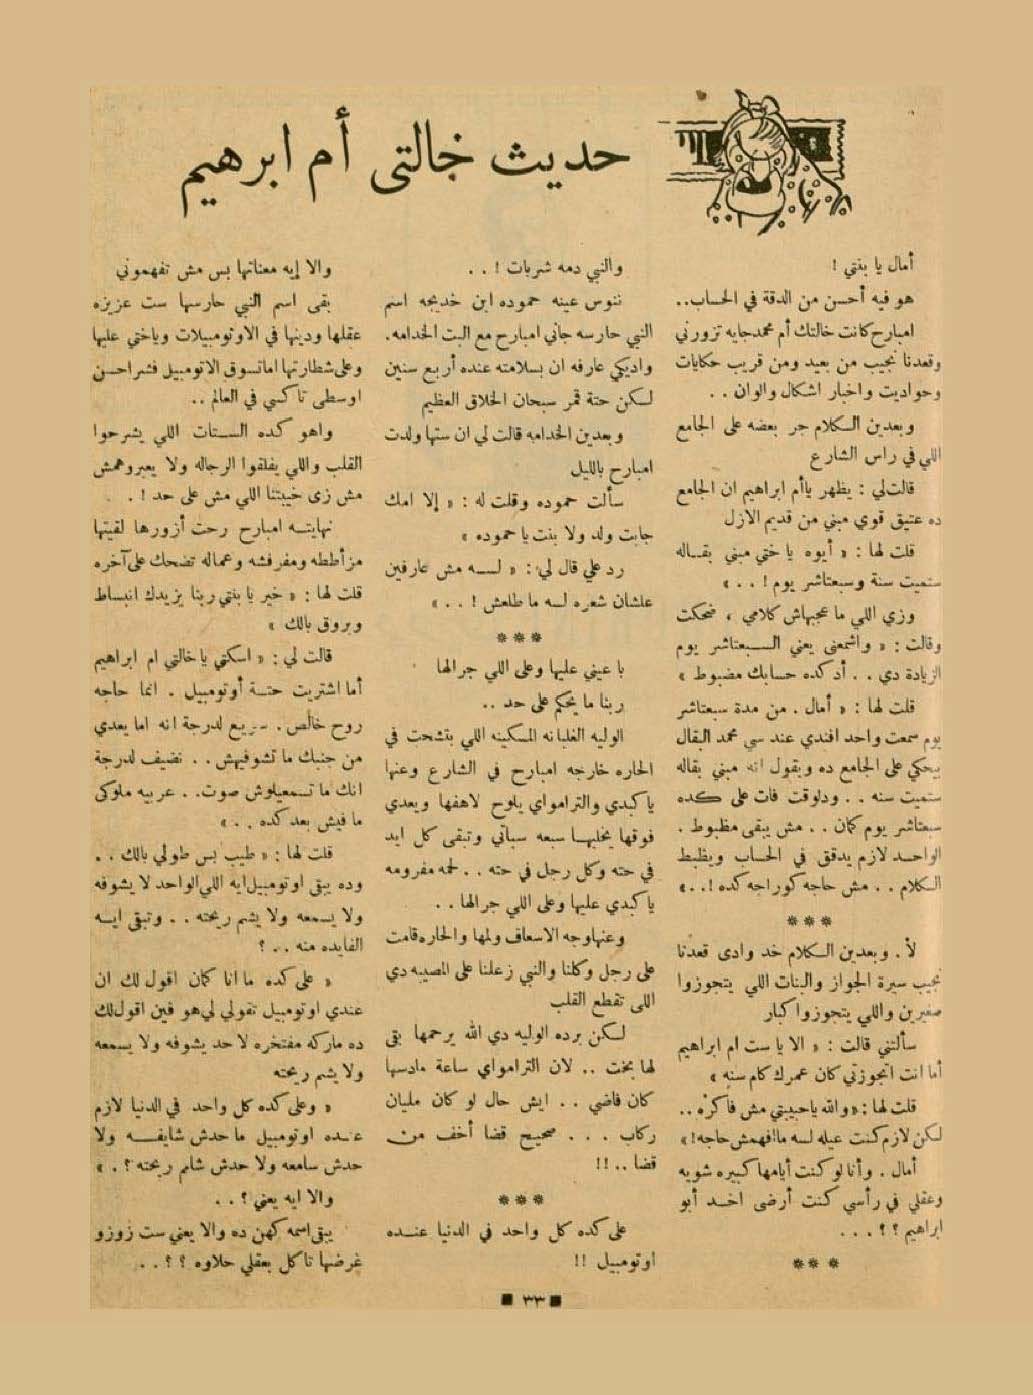 حديث خالتي أم ابرهيم
أمال يا بنتي !
هو فيه أحسن من الدقة في الحساب..
امبارح كانت خالتك أم محمد جايه تزورني
وقعدنا نجيب من بعيد ومن قريب حكايات
وحواديت واخبار اشكال والوان . .
وبعدين الكلام جر بعضه على الجامع
اللي في راس الشارع
قالت لي : يظهر ياأم ابراهيم ان الجامع
ده عتيق قوي مبني من قديم الازل
قلت لها : « أيوه يا ختي مبني بقاله
ستميت سنة وسبعتاشر يوم ! . . »
وزي اللي ما عجبهاش كلامي ، ضحكت
وقالت : « واشمعنى يعني السبعتاشر يوم
الزيادة دي . . أد كده حسابك مضبوط »
قلت لها : « أمال . من مدة سبعتاشر
يوم سمعت واحد افندي عند سي محمد البقال
بيحكي على الجامع ده وبقول انه مبني بقاله
ستميت سنه . . ودلوقت فات على كده
سبعتاشر يوم كمان . . مش يبقى مظبوط .
الواحد لازم يدقق في الحساب ويظبط
الكلام . . مش حاجه كوراجه كده ! . . »
***
لأ . وبعدين الكلام خد وادى قعدنا
نجيب سيرة الجواز والبنات اللي يتجوزوا
صغيرين واللي يتجوزوا كبار
سألتني قالت : « الا يا ست ام ابراهيم
أما انت اتجوزتي كان عمرك كام سنه »
قلت لها : «والله ياحبيبتي مش فاكره ..
لكن لازم كنت عيله لسه ماافهمش حاجه !»
أمال . وأنا لو كنت أيامها كبيره شويه
وعقلي في رأسي كنت أرضى اخد أبو
ابراهيم ؟ ؟ . . .
***
والنبي دمه شربات ! . .
ننوس عينه حموده ابن خديجه اسم
النبي حارسه جاني امبارح مع البت الخدامه.
واديكي عارفه ان بسلامته عنده أربع سنين
لكن حتة قمر سبحان الخلاق العظيم
وبعدين الخدامه قالت لي ان ستها ولدت
امبارح بالليل
سألت حموده وقلت له : « إلا امك
جابت ولد ولا بنت يا حموده »
رد علي قال لي : « لسه مش عارفين
علشان شعره لسه ما طلعش ! . . »
***
يا عيني عليها وعلى اللي جرالها
ربنا ما يحكم على حد ..
الوليه الغلبانه المسكينه اللي بتشحت في
الحاره خارجه امبارح في الشارع وعنها
يا كبدي والترامواي يلوح لاهفها ويعدي
فوقها يخليها سبعه سباتي وتبقى كل ايد
في حته وكل رجل في حته . . لحمه مفرومه
يا كبدي عليها وعلى اللي جرالها . .
وعنها وجه الاسعاف ولمها والحاره قامت
على رجل وكلنا والنبي زعلنا على المصيبه دي
اللى تقطع القلب
لكن برده الوليه دي الله يرحمها بقى
لها بخت .. لان الترامواي ساعة مادسها
كان فاضي . . ايش حال لو كان مليان
ركاب . . . صحيح قضا أخف من
قضا .. !!
***
على كده كل واحد في الدنيا عنده
اوتومبيل !!
والا إيه معناتها بس مش تفهموني
بقى اسم النبي حارسها ست عزيزه
عقلها ودينها في الاوتومبيلات وياختي عليها
وعلى شطارتها اما تسوق الاتومبيل فشر احسن
اوسطى تاكسي في العالم ..
واهو كده الستات اللي يشرحوا
القلب واللي يفلقوا الرجاله ولا يعبروهمش
مش زى خيبتنا اللي مش على حد ! .
نهايته امبارح رحت أزورها لقيتها
مزأططه ومفرفشه وعماله تضحك على آخره
قلت لها : « خير يا بنتي ربنا يزيدك انبساط
وبروق بالك »
قالت لي : « اسكتي يا خالتي ام ابراهيم
أما اشتريت حتة أوتومبيل . انما حاجه
روح خالص . سريع لدرجة انه اما يعدي
من جنبك ما تشوفيهش . . نضيف لدرجة
انك ما تسمعيلوش صوت. . عربيه ملوكى
ما فيش بعد كده . . »
قلت لها : « طيب بس طولي بالك . .
وده يبقى اوتومبيل ايه اللي الواحد لا يشوفه
ولا يسمعه ولا يشم ريحته . . وتبقى ايه
الفايده منه . . ؟
« على كده ما انا كمان اقول لك ان
عندي اوتومبيل تقولي لي هو فين اقول لك
ده ماركه مفتخره لا حد يشوفه ولا يسمعه
ولا يشم ريحته
« وعلى كده كل واحد في الدنيا لازم
عنده اوتومبيل ما حدش شايفه ولا
حدش سامعه ولا حدش شامم ريحته ؟ . »
والا ايه يعني ؟ . .
يبقى اسمه كهن ده والا يعني ست زوزو
غرضها تاكل بعقلي حلاوه ؟ ؟ . .
٣٣